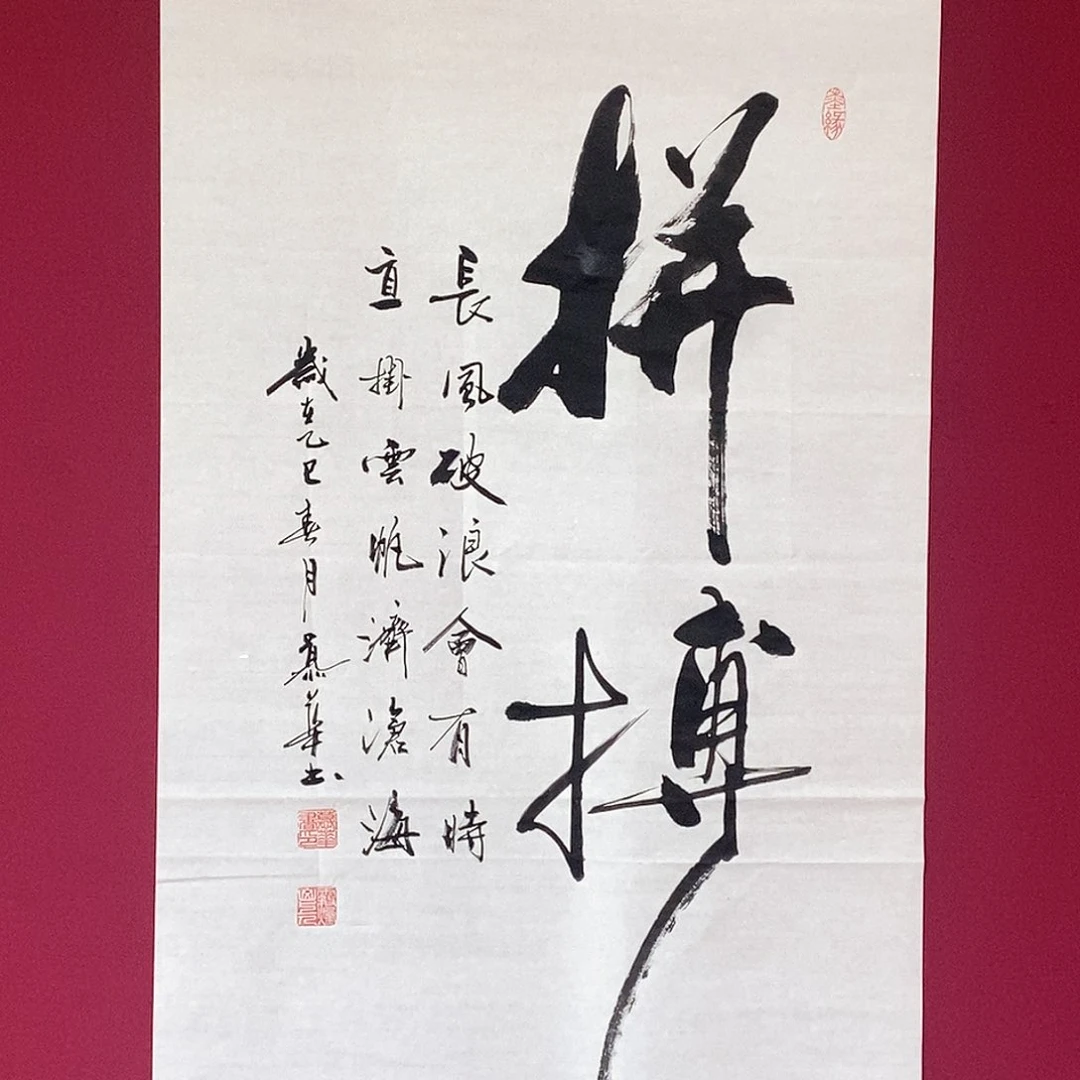 墨緣
拼搏
長風破浪會有時
直掛雲帆濟滄海
歲在乙巳春月慕華书